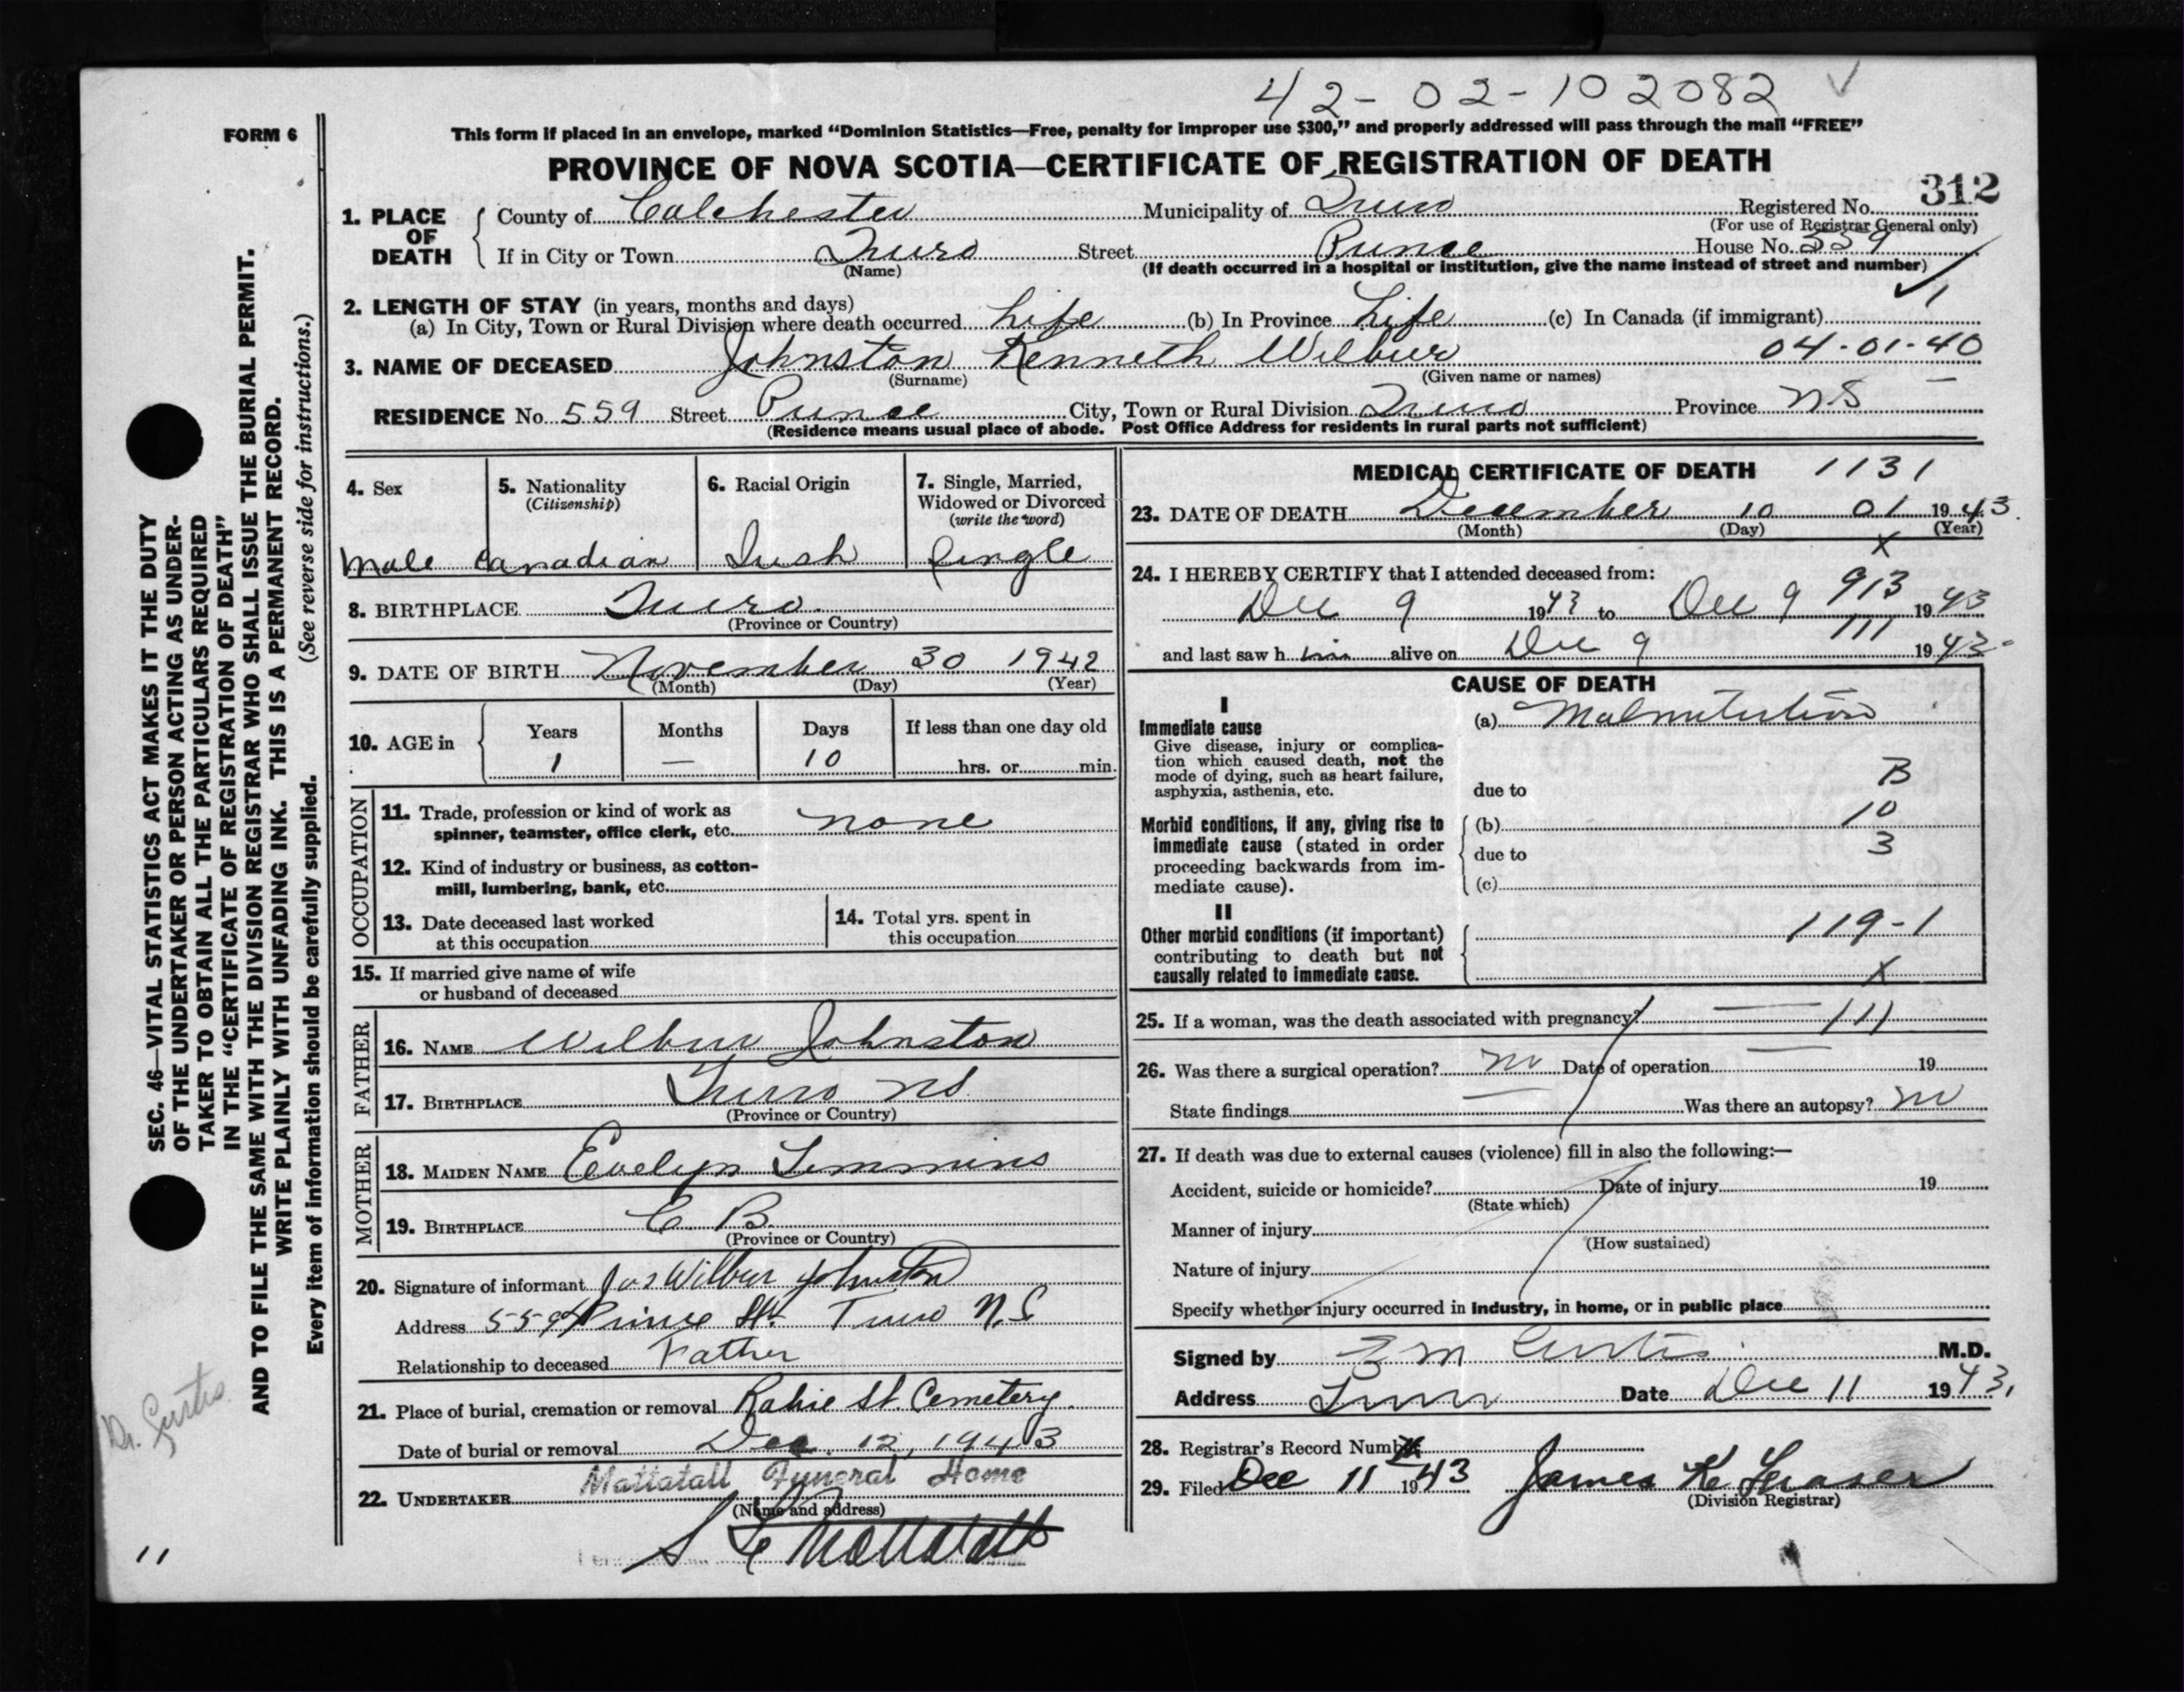 42-02-102082 ✓
FORM 6
This form if placed in an envelope, marked “Dominion Statistics—Free, penalty for improper use $300,” and properly addressed will pass through the mail “FREE”
PROVINCE OF NOVA SCOTIA—CERTIFICATE OF REGISTRATION OF DEATH
312
1. PLACE OF DEATH
County of Colchester Municipality of Truro Registered No.
(For use of Registrar General only)
If in City or Town Truro Street Prince House No. 559
(Name) (If death occurred in a hospital or institution, give the name instead of street and number)
2. LENGTH OF STAY (in years, months and days)
(a) In City, Town or Rural Division where death occurred Life (b) In Province Life (c) In Canada (if immigrant)
3. NAME OF DECEASED Johnston Kenneth Wilbur 04-01-40
(Surname) (Given name or names)
RESIDENCE No. 559 Street Prince City, Town or Rural Division Truro Province N.S —
(Residence means usual place of abode. Post Office Address for residents in rural parts not sufficient)
4. Sex
male
5. Nationality
(Citizenship)
Canadian
6. Racial Origin
Irish
7. Single, Married,
Widowed or Divorced
(write the word)
Single
8. BIRTHPLACE Truro.
(Province or Country)
9. DATE OF BIRTH November 30 1942
(Month) (Day) (Year)
10. AGE in
Years Months Days If less than one day old
1 — 10 hrs. or min.
OCCUPATION
11. Trade, profession or kind of work as
spinner, teamster, office clerk, etc. none
12. Kind of industry or business, as cotton-
mill, lumbering, bank, etc.
13. Date deceased last worked
at this occupation
14. Total yrs. spent in
this occupation
15. If married give name of wife
or husband of deceased
FATHER
16. NAME Wilbur Johnston
17. BIRTHPLACE Truro NS.
(Province or Country)
MOTHER
18. MAIDEN NAME Evelyn Timmins
19. BIRTHPLACE C B.
(Province or Country)
20. Signature of informant Jas Wilbur Johnston
Address 559 Prince St. Truro N.S
Relationship to deceased Father
21. Place of burial, cremation or removal Robie St. Cemetery.
Date of burial or removal Dec. 12, 1943
22. UNDERTAKER Mattatall Funeral Home
(Name and address)
Mattatall
MEDICAL CERTIFICATE OF DEATH 1131
23. DATE OF DEATH December 10 01 1943.
(Month) (Day) (Year)
X
24. I HEREBY CERTIFY that I attended deceased from:
Dec 9 1943 to Dec 9 913 1943
111
and last saw him alive on Dec 9 1943-
CAUSE OF DEATH
I
Immediate cause
Give disease, injury or complica-
tion which caused death, not the
mode of dying, such as heart failure,
asphyxia, asthenia, etc.
(a) Malnutrition
B
due to
Morbid conditions, if any, giving rise to
immediate cause (stated in order
proceeding backwards from im-
mediate cause).
(b) 10
due to 3
(c)
II
Other morbid conditions (if important)
contributing to death but not
causally related to immediate cause.
119-1
X
25. If a woman, was the death associated with pregnancy? — 111
26. Was there a surgical operation? no Date of operation — 19
State findings — Was there an autopsy? no
27. If death was due to external causes (violence) fill in also the following:—
Accident, suicide or homicide? Date of injury 19
(State which)
Manner of injury
(How sustained)
Nature of injury
Specify whether injury occurred in industry, in home, or in public place
Signed by Curtis M.D.
Address Truro Date Dec 11 1943,
28. Registrar's Record Number
29. Filed Dec 11 1943 James K Fraser
(Division Registrar)
SEC. 46—VITAL STATISTICS ACT MAKES IT THE DUTY
OF THE UNDERTAKER OR PERSON ACTING AS UNDER-
TAKER TO OBTAIN ALL THE PARTICULARS REQUIRED
IN THE “CERTIFICATE OF REGISTRATION OF DEATH”
AND TO FILE THE SAME WITH THE DIVISION REGISTRAR WHO SHALL ISSUE THE BURIAL PERMIT.
WRITE PLAINLY WITH UNFADING INK. THIS IS A PERMANENT RECORD.
Every item of information should be carefully supplied. (See reverse side for instructions.)
Dr. Curtis
11